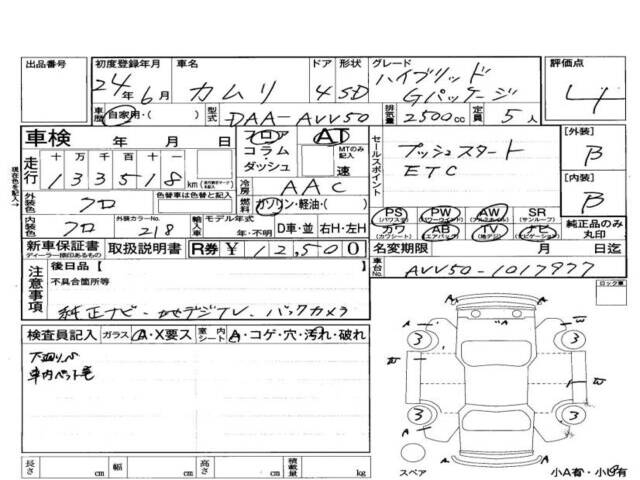 出品番号 初度登録年月 車名 ドア 形状 グレード 評価点
24年6月 カムリ 4 SD ハイブリッド Gパッケージ 4
車歴 自家用・( ) 型式 DAA-AVV50 排気量 2500cc 定員 5人
車検 年 月 日 フロア コラム・ダッシュ AT MTのみ記入 速
セールスポイント
プッシュスタート
ETC
[外装] B
[内装] B
走行 十 万 千 百 十 一
133518 km
現在色を記入→
冷房 AAC
外装色 クロ 色替車は色替と記入
燃料 ガソリン・軽油・( )
内装色 クロ 外装カラーNo. 218 輸入車 モデル年式 年・不明 D車・並 右H・左H
PS (パワステ) PW (パワーウインド) AW (アルミホイル) SR (サンルーフ)
カワ (カワシート) AB (エアバック) TV (地デジ) ナビ (ナビゲーション)
純正品のみ丸印
新車保証書 ディーラー捺印あるもの 取扱説明書 R券 ¥12,500
名変期限 月 日迄
車台No. AVV50-1017977
注意事項 後日品[ ]
不具合箇所等
純正ナビ・地デジTV、バックカメラ
ロック車
検査員記入 ガラス A・X要ス 室内シート A・コゲ・穴・汚れ・破れ
下廻りサビ
車内ペット毛
A A A
W W
3 3
3 3
A A
スペア
長さ cm 幅 cm 高さ cm 積載量 kg
小A有・小凹有